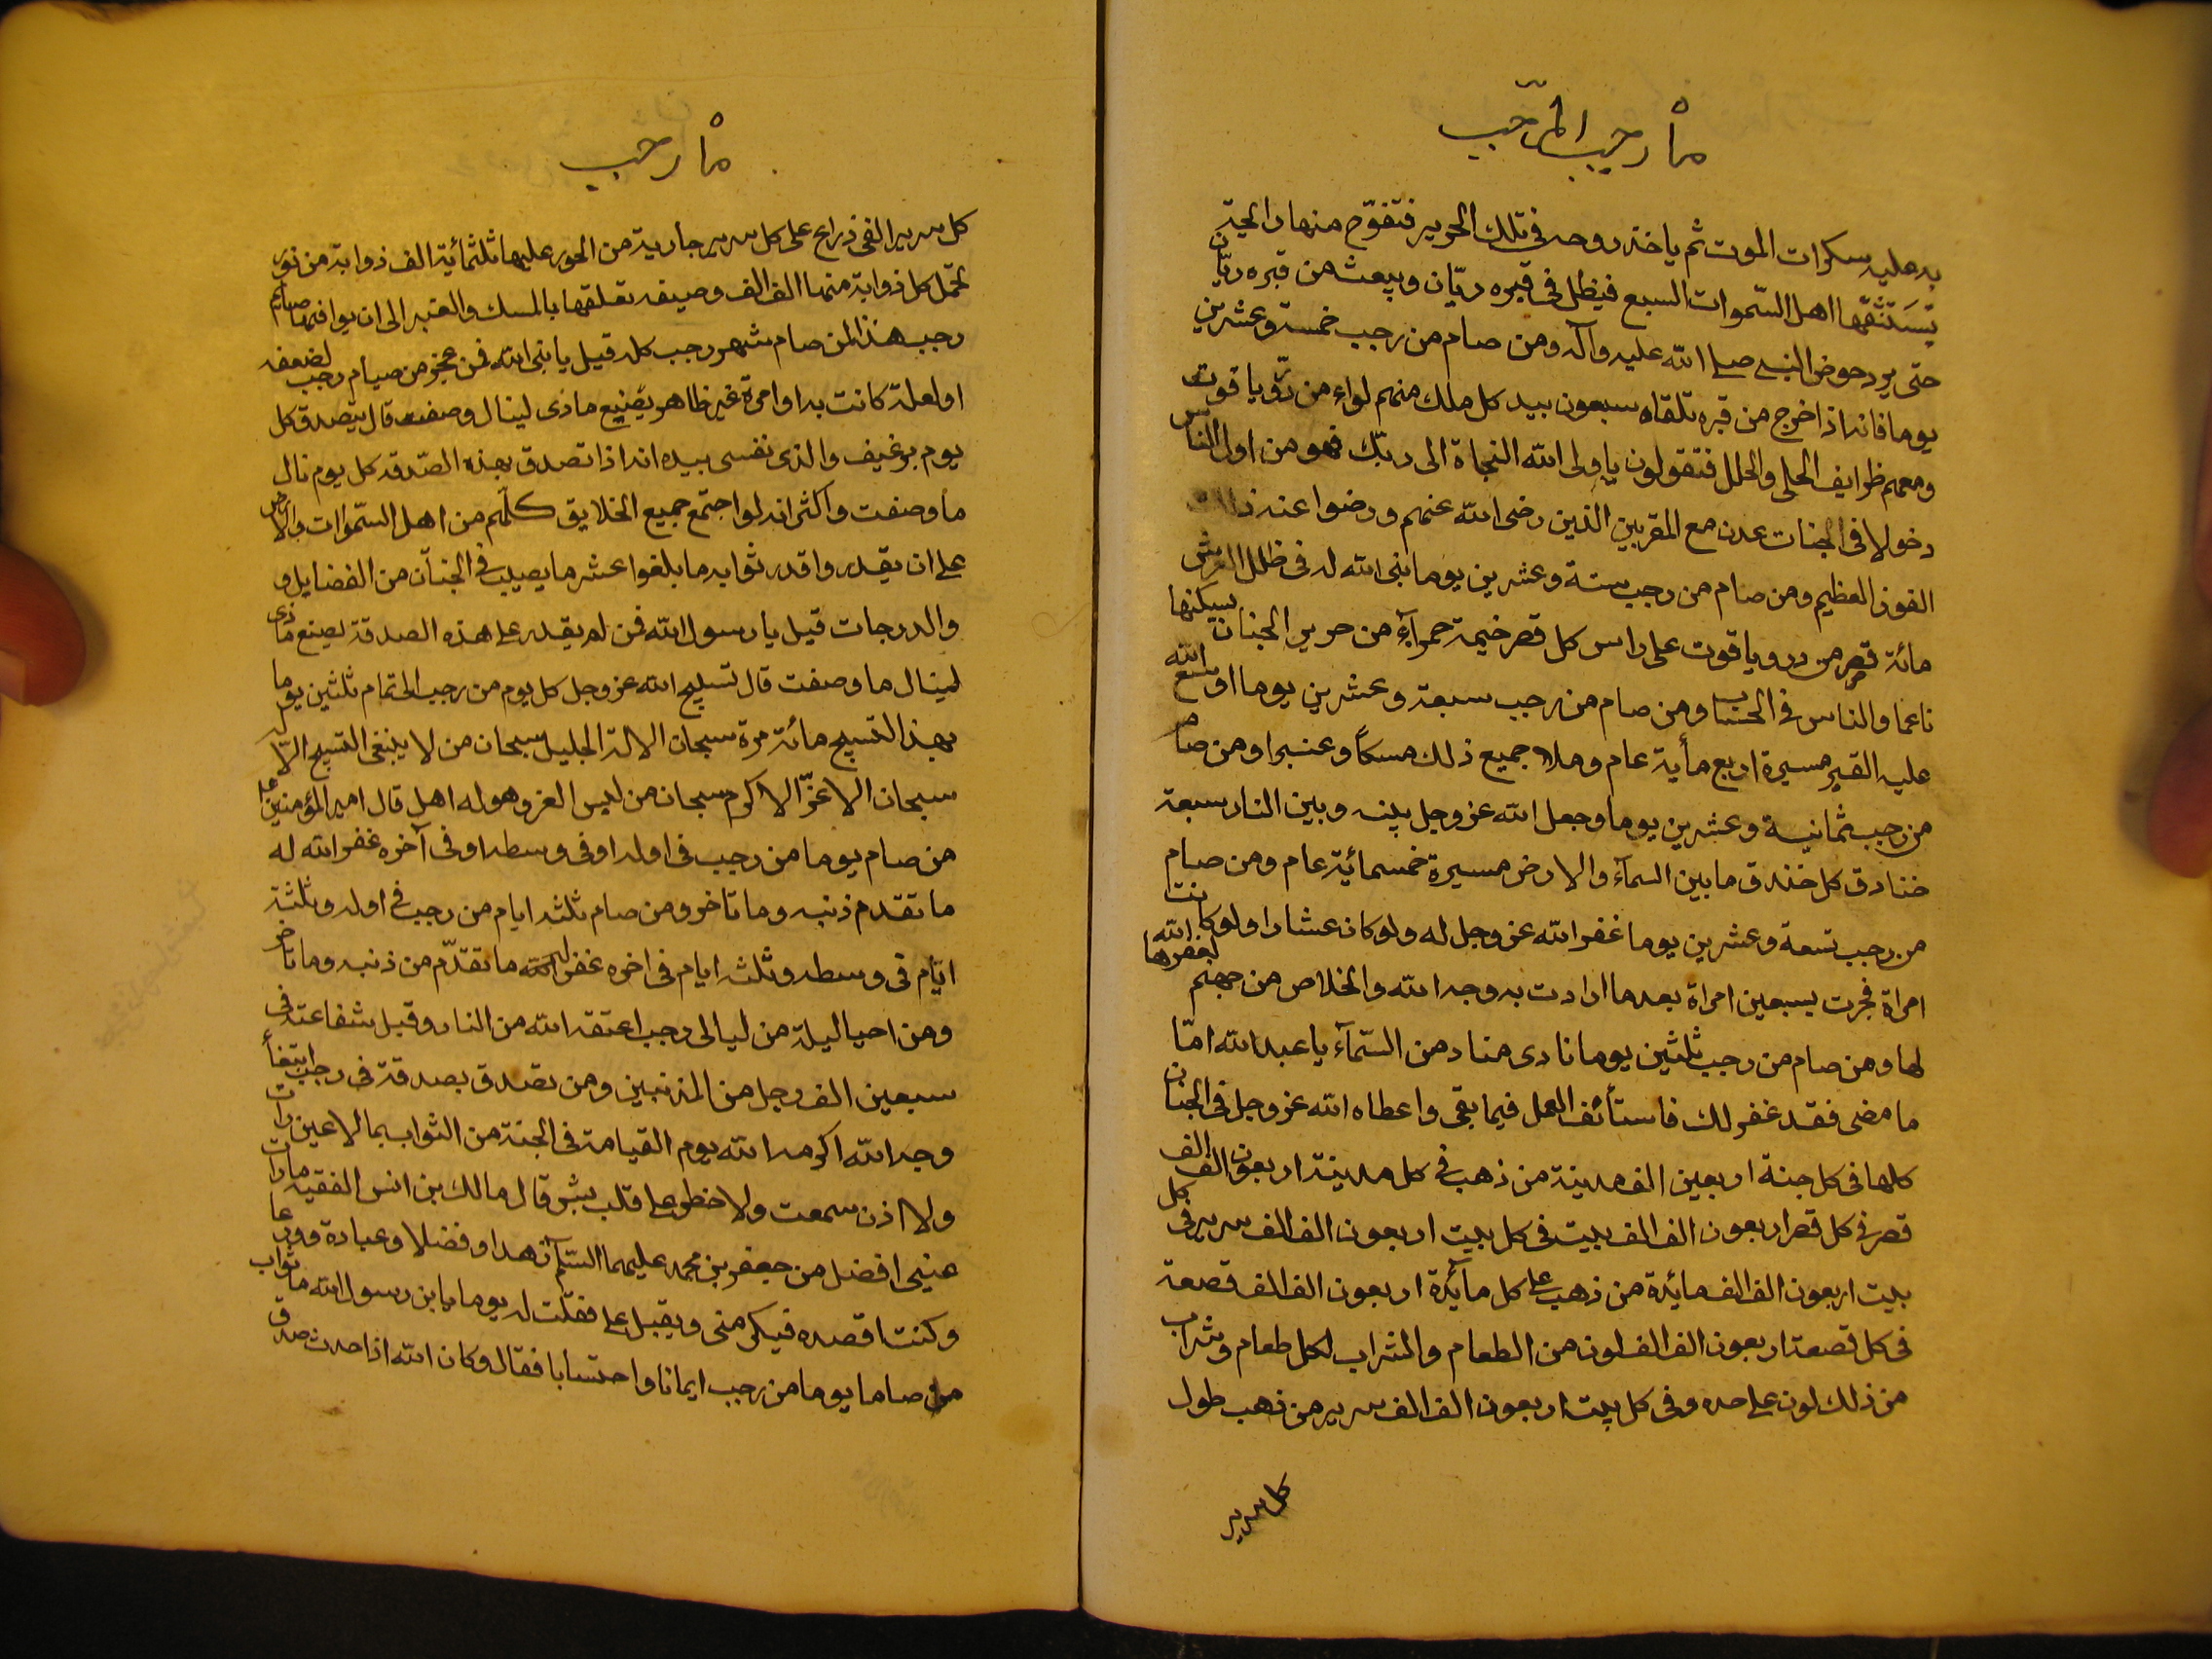 ماه رجب المرجّب
به عليه سكرات الموت ثم ياخذ روحه فى تلك الحرير فتفوّح منها رائحة
يستنشقها اهل السّموات السبع فيظل فى قبره ريّان ويبعث من قبره ريّان
حتى يرد حوض النبى صلى الله عليه وآله ومن صام من رجب خمسة وعشرين
يوما فانه اذا خرج من قبره تلقاه سبعون بيد كل ملك منهم لواء من درّ وياقوت
ومعهم ظرايف الحلى والحلل فتقولون يا ولى الله النجاة الى ربّك فهو من اول الناس
دخولا فى الجنات عدن مع المقربين الذين رضى الله عنهم ورضوا عنه ذلك
الفوز العظيم ومن صام من رجب ستة وعشرين يوما بنى الله له فى ظلل العرش
مائة قصر من در وياقوت على راس كل قصر خيمة حمرآء من حرير الجنان يسكنها
ناعما والناس فى الحساب ومن صام من رجب سبعة وعشرين يوما اوسع الله
عليه القبر مسيرة اربع مأية عام وملاء جميع ذلك مسكاً وعنبرا ومن صام
من رجب ثمانية وعشرين يوما وجعل الله عز وجل بينه وبين النار سبعة
خنادق كل خندق ما بين السمآء والارض مسيرة خمسمائية عام ومن صام
من رجب تسعة وعشرين يوما غفر الله عز وجل له ولو كان عشارا ولو كانت
امراة فجرت بسبعين امراة بعد ما ارادت به وجه الله والخلاص من جهنم لغفر الله
لها ومن صام من رجب ثلثين يوما نادى مناد من السّمآء يا عبد الله امّا
ما مضى فقد غفر لك فاستأنف العمل فيما بقى واعطاه الله عز وجل فى الجنان
كلها فى كل جنة اربعين الف مدينة من ذهب فى كل مدينة اربعون الف الف
قصر فى كل قصر اربعون الف الف بيت فى كل بيت اربعون الف الف سرير فى كل
بيت اربعون الف الف مائدة من ذهب على كل مآئدة اربعون الف الف قصعة
فى كل قصعة اربعون الف الف لون من الطعام والشراب لكل طعام وشراب
من ذلك لون على حده وفى كل بيت اربعون الف الف سرير من ذهب طول
كل سرير
ماه رجب
كل سرير الفى ذراع على كل سرير جارية من الحور عليها ثلثمائية الف ذوابة من نور
تحمل كل ذوابة منها الف الف وصيفه تعلقها بالمسك والعنبر الى ان يوافيها صائم
رجب هذا لمن صام شهر رجب كله قيل يا نبى الله فمن عجز من صيام رجب لضعف
او لعلة كانت به او امرة غير طاهر يصنيع ماذى لينال وصفت قال يتصدق كل
يوم برغيف والذى نفسى بيده انه اذا تصدق بهذه الصّدقة كل يوم نال
ما وصفت واكثر انه لو اجتمع جميع الخلايق كلّهم من اهل السّموات والارض
على ان يقدروا قدر ثوابه ما بلغوا عشر ما يصيب فى الجنآن من الفضايل و
والدرجات قيل يا رسول الله فمن لم يقدر على هذه الصدقة يصنع ماذى
لينال ما وصفت قال تسبيح الله عز وجل كل يوم من رجب الى تمام ثلثين يوما
بهذا التسبيح مائة مرة سبحان الاله الجليل سبحان من لا ينبغى التسبيح الّا له
سبحان الاعزّ الاكرم سبحان من لبس العز وهو له اهل قال امير المؤمنين ع
من صام يوما من رجب فى اوله او فى وسطه او فى آخره غفر الله له
ما تقدم ذنبه وما تاخر ومن صام ثلثه ايام من رجب فى اوله وثلثة
ايّام فى وسطه وثلثه ايام فى اخره غفر الله له ما تقدّم من ذنبه وما تاخر
ومن احيا ليلة من ليالى رجب اعتقه الله من النار وقبل شفاعته فى
سبعين الف رجل من المذنبين ومن تصدق بصدقة فى رجب ابتغأ
وجه الله اكرمه الله يوم القيامة فى الجنة من الثواب بما لا عين رات
ولا اذن سمعت ولا خطر على قلب بشر قال مالك بن انس الفقيه ما رات
عينى افضل من جعفر بن محمد عليهما السّلم زهدا وفضلا وعبادة وورعا
وكنت اقصده فيكرمنى ويقبل على فقلت له يوما يا بن رسول الله ما ثواب
من صام يوما من رجب ايمانا واحتسابا فقال وكان الله اذا حدث صدق